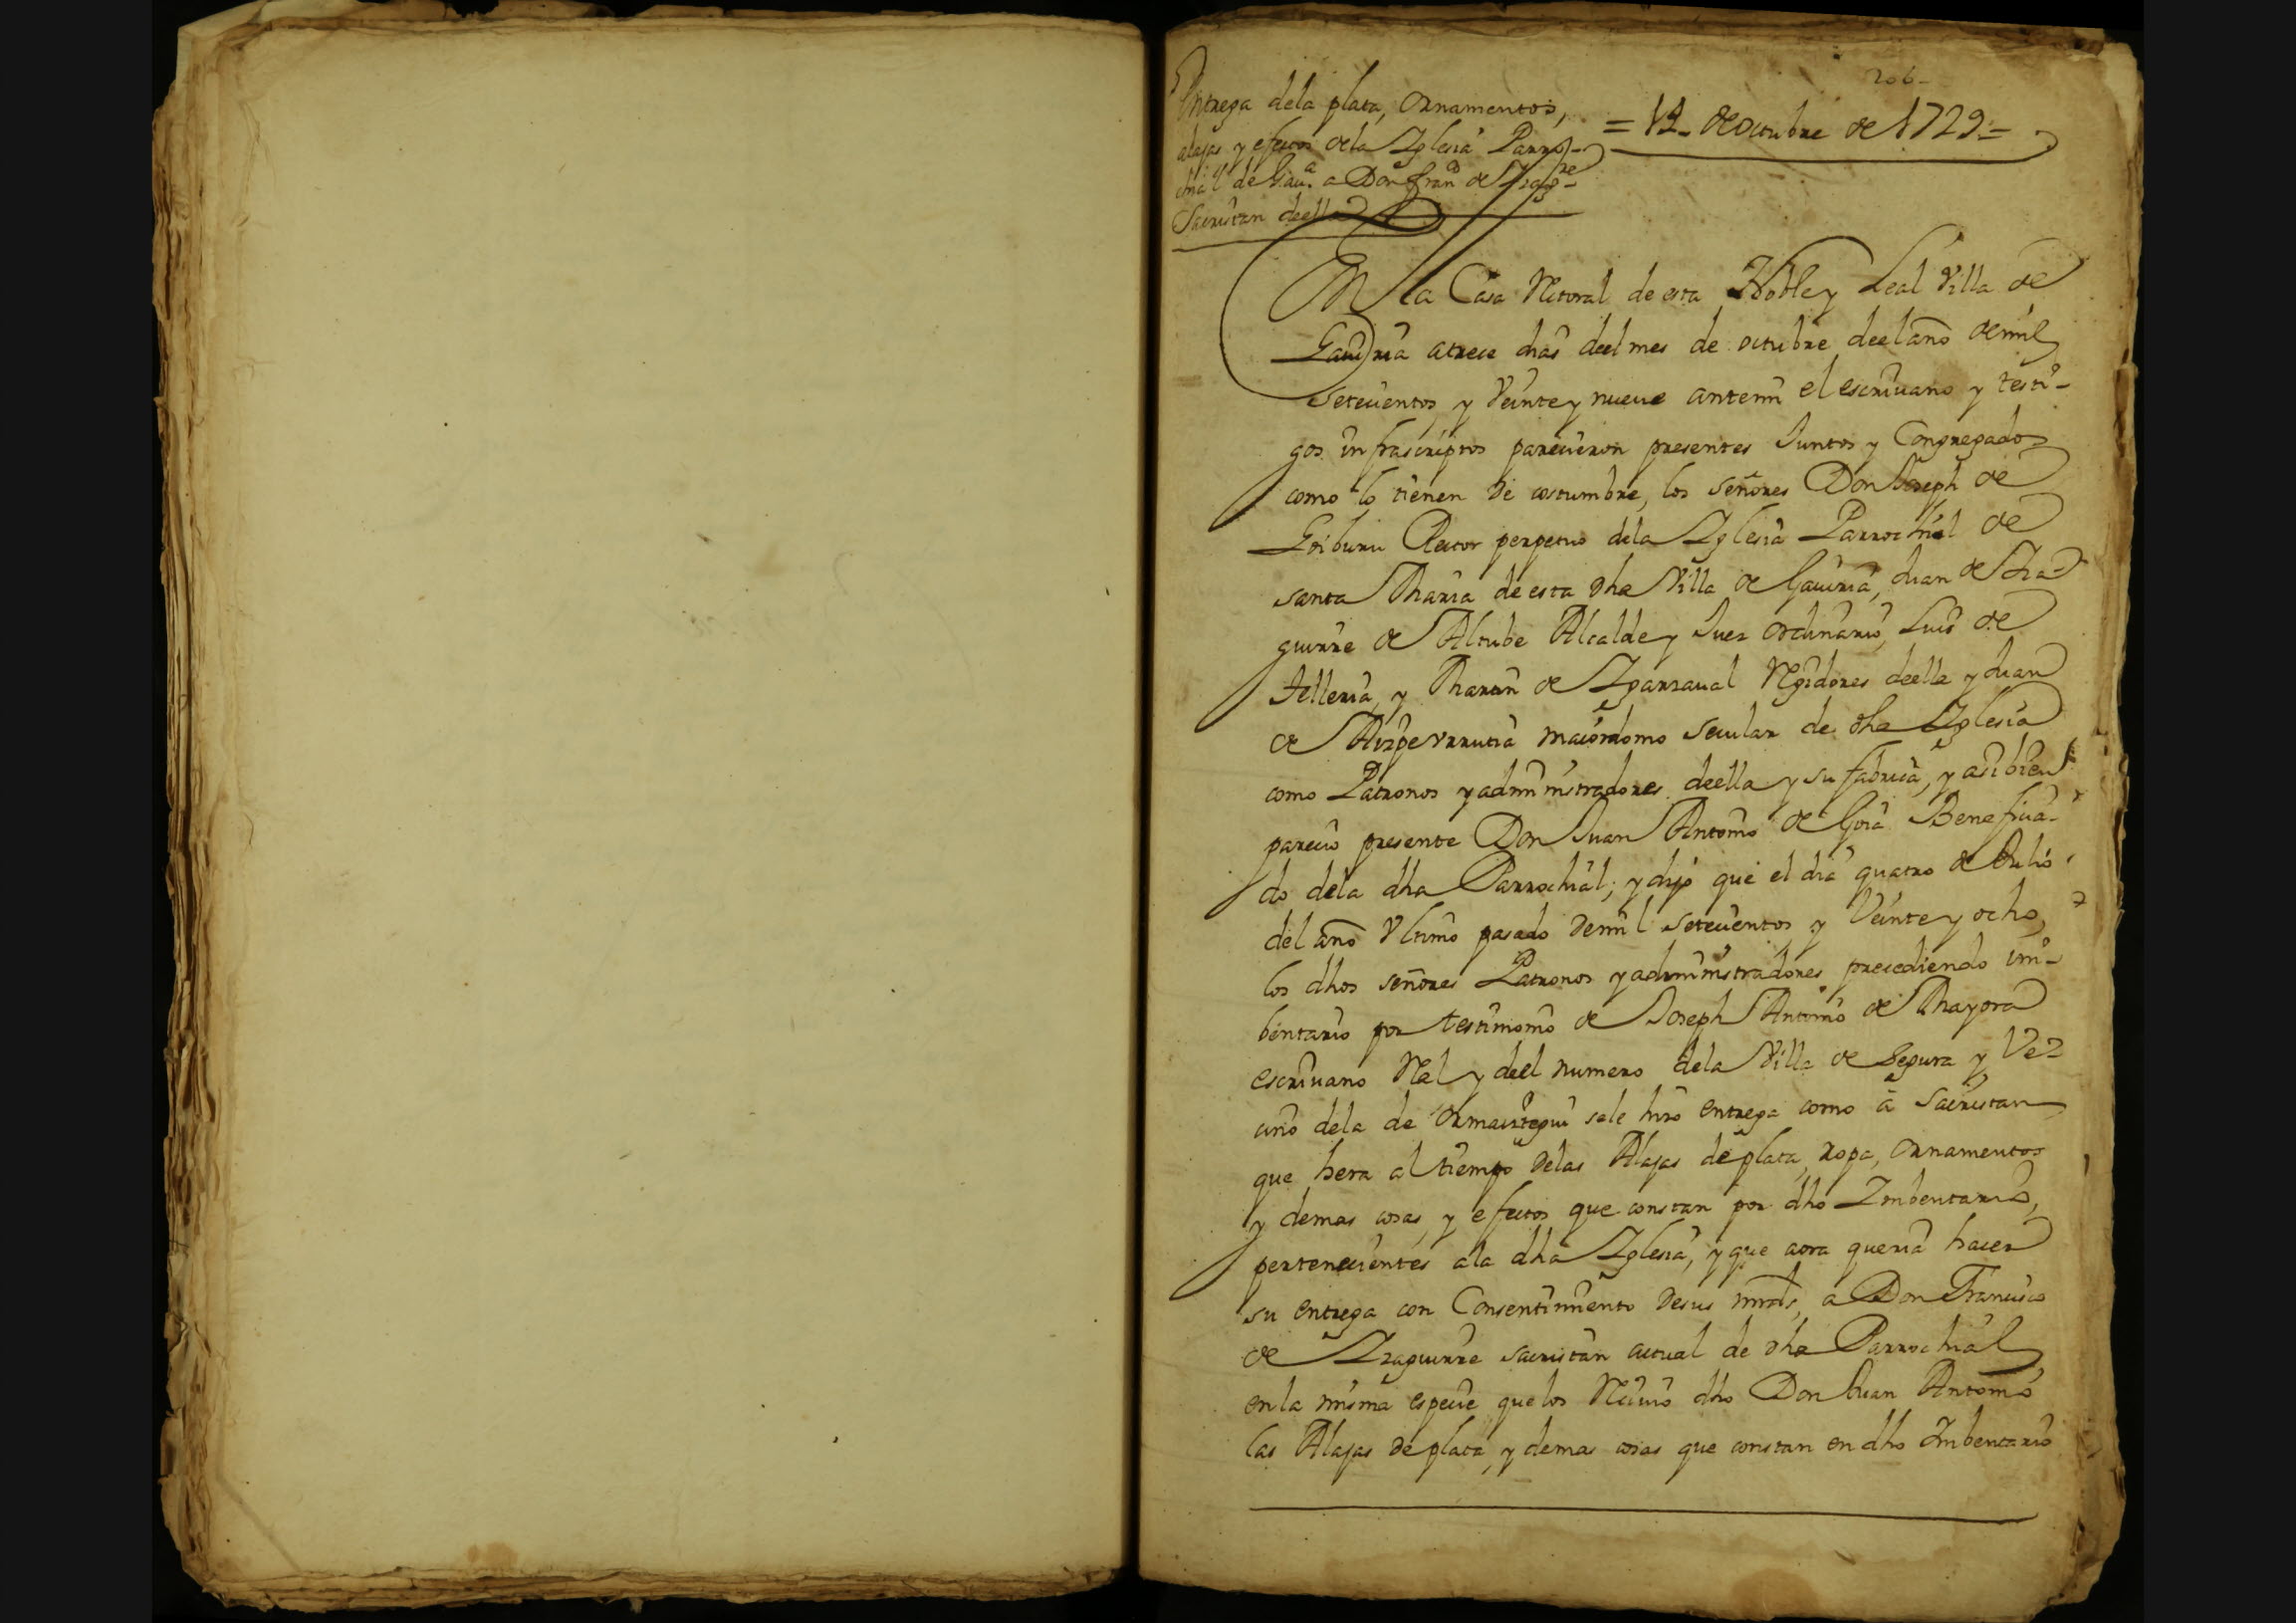 206-
Entrega dela plata, Ornamentos,
alajas y efectos dela Yglesia Parro-
chial de Gauª a Don Franco de Yragre
Sacristan deella
= 13- de octubre de 1729 =
En la Casa Retoral de esta Noble y Leal Villa de
Gauiria atrece dias deel mes de octubre deel año de mil
setecientos y Veinte y nueue antemi el escriuano y testi-
gos infrascriptos parecieron presentes Juntos y Congregados
como lo tienen de costumbre, los señores Don Joseph de
Goiburu Rector perpetuo dela Yglesia Parrochial de
santa Maria de esta dha Villa de Gauiria, Juan de Yra-
guirre de Altube Alcalde y Juez ordinario, Luis de
Telleria, y Martin de Ygarzaual Regidores deella y Juan
de Aizpevrrutia maiordomo secular de dha Yglesia
como Patronos y administradores deella y su fabrica, y asi bien
parecio presente Don Juan Antonio de Goia Beneficia-
do dela dha Parrochial; y dijo que el dia quatro de Julio
del año Vltimo pasado de mil setecientos y Veinte y ocho,
los dhos señores Patronos y administradores, precediendo im-
bentario por testimonio de Joseph Antonio de Mayora
escriuano Real y deel numero dela Villa de Segura y Vez-
ino dela de Ormaiztegui sele hizo entrega como â Sacristan
que hera al tiempo delas Alajas de plata, ropa, ornamentos
y demas cosas, y efectos que constan por dho Ymbentario,
pertenecientes ala dha Yglesia, y que aora queria hacer
su entrega con Consentimiento desus mrds, a Don Francisco
de Yraguirre sacristan actual de dha Parrochial
en la misma especie que los Reciuio dho Don Juan Antonio
las Alajas de plata, y demas cosas que constan en dho Imbentario